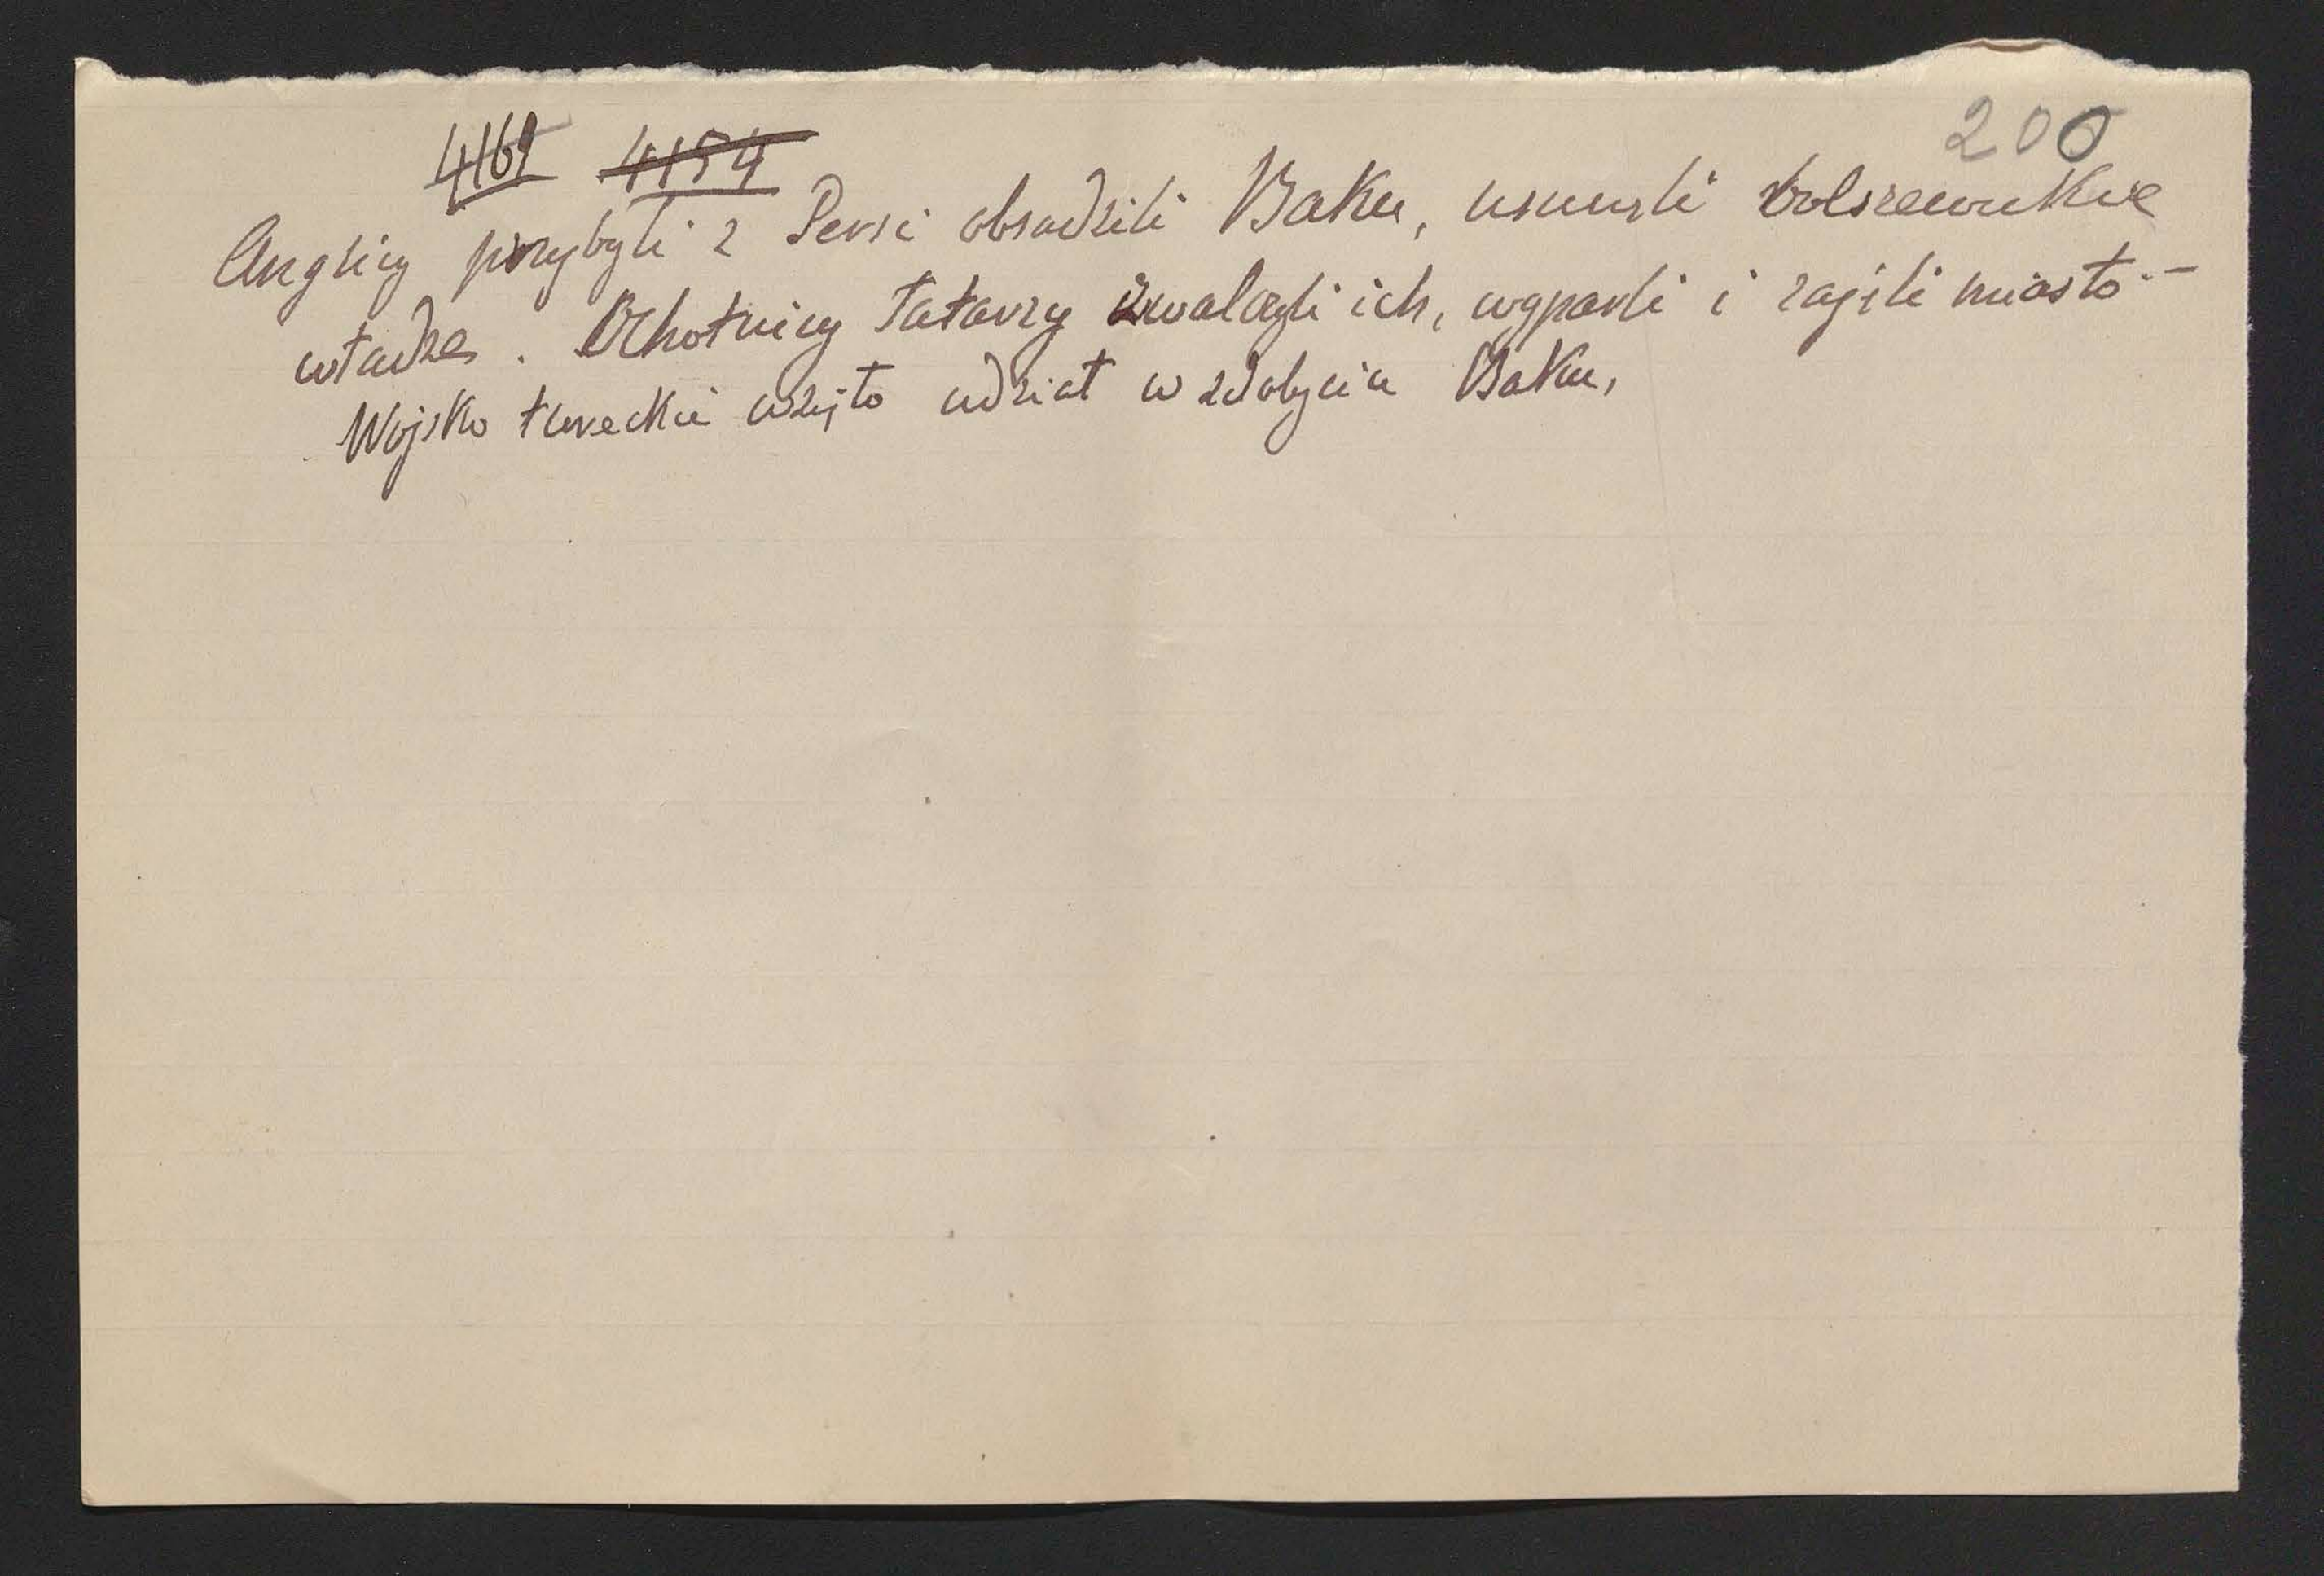 200
4169 4154
Anglicy przybyli z Persi obsadzili Baku, usunęli bolszewickie
władze. Ochotnicy Tatarzy zwalczyli ich, wyparli i zajęli miasto.-
Wojsko tureckie wzięło udział w zdobyciu Baku,